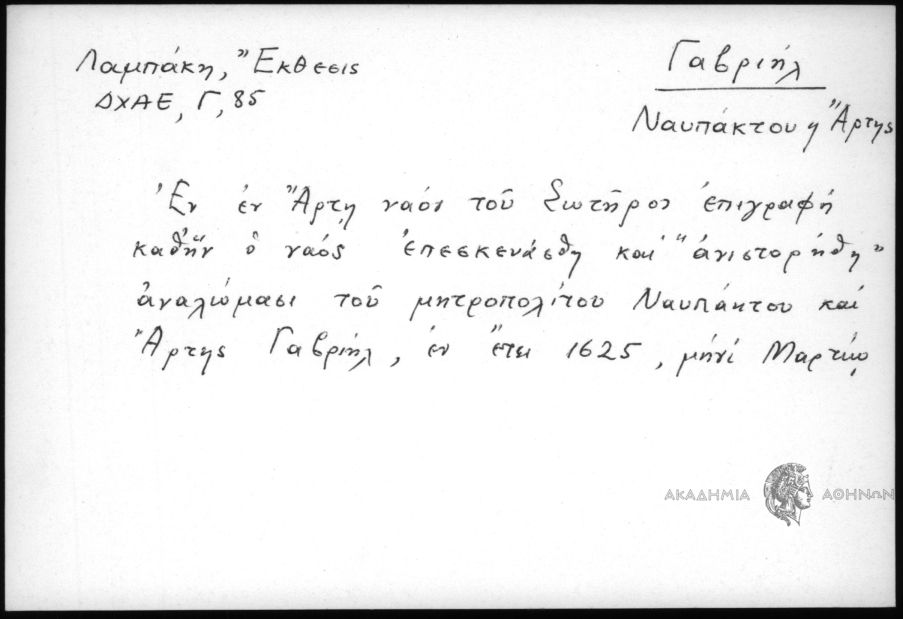 Λαμπάκη, Ἔκθεσις
ΔΧΑΕ, Γ, 85
Γαβριήλ
Ναυπάκτου ἢ Ἄρτης
Ἐν ἐν Ἄρτῃ ναόν τοῦ Σωτῆρος ἐπιγραφή
καθ' ἥν ὁ ναός ἐπεσκευάσθη καί "ἀνιστορήθη"
ἀναλώμασι τοῦ μητροπολίτου Ναυπάκτου καί
Ἄρτης Γαβριήλ, ἐν ἔτει 1625, μηνί Μαρτίῳ
ΑΚΑΔΗΜΙΑ ΑΘΗΝΩΝ